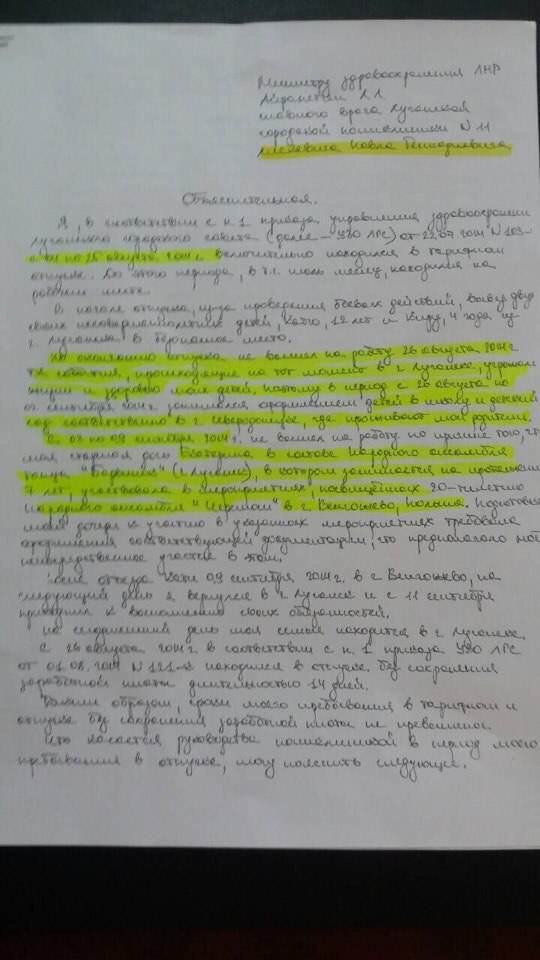 Министру здравоохранения ЛНР
Л.Л.
главного врача Луганской
городской поликлиники № 11
Павла Геннадиевича
Объяснительная.
Я, в соответствии с п.1 приказа управления здравоохранения
Луганского городского совета (далее – УЗО ЛГС) от 22.07.2014 №
по 25 августа 2014 г. включительно находился в тарифном
отпуске. До этого периода, в т.ч. июль месяц, находился на
рабочем месте.
В начале отпуска, из-за проведения боевых действий, вывез двух
своих несовершеннолетних детей, Катю, 12 лет и Киру, 4 года из
г. Луганска в безопасное место.
По окончанию отпуска не вышел на работу 26 августа 2014 г.
т.к. события, происходящие на тот момент в г. Луганске, угрожали
жизни и здоровью моих детей. Поэтому в период с 26 августа по
сентября 2014 г. занимался оформлением детей в школу и детский
сад соответственно в г. где проживают мои родители.
С 03 по 09 сентября 2014 г. не вышел на работу по причине того, что
моя старшая дочь Екатерина в составе Народного ансамбля
танца (г. Луганск), в котором занимается на протяжении
7 лет, участвовала в мероприятиях, посвящённых 20-тилетию
народного ансамбля в г. Венгожево, Польша. Подготовка
моей дочери к участию в указанных мероприятиях требовала
оформления соответствующей документации, что предполагало моё
непосредственное участие в этом.
После отъезда Кати 09 сентября 2014 г. в г. Венгожево, на
следующий день я вернулся в г. Луганск и с 11 сентября
приступил к выполнению своих обязанностей.
На сегодняшний день моя семья находится в г. Луганске.
С 26 августа 2014 г. в соответствии с п. 1 приказа УЗО ЛГС
от 01.08.2014 № находился в отпуске без сохранения
заработной платы длительностью 14 дней.
Таким образом, сроки моего пребывания в тарифном и
отпуске без сохранения заработной платы не превышены.
Что касается руководства поликлиникой в период моего
пребывания в отпуске, могу пояснить следующее.